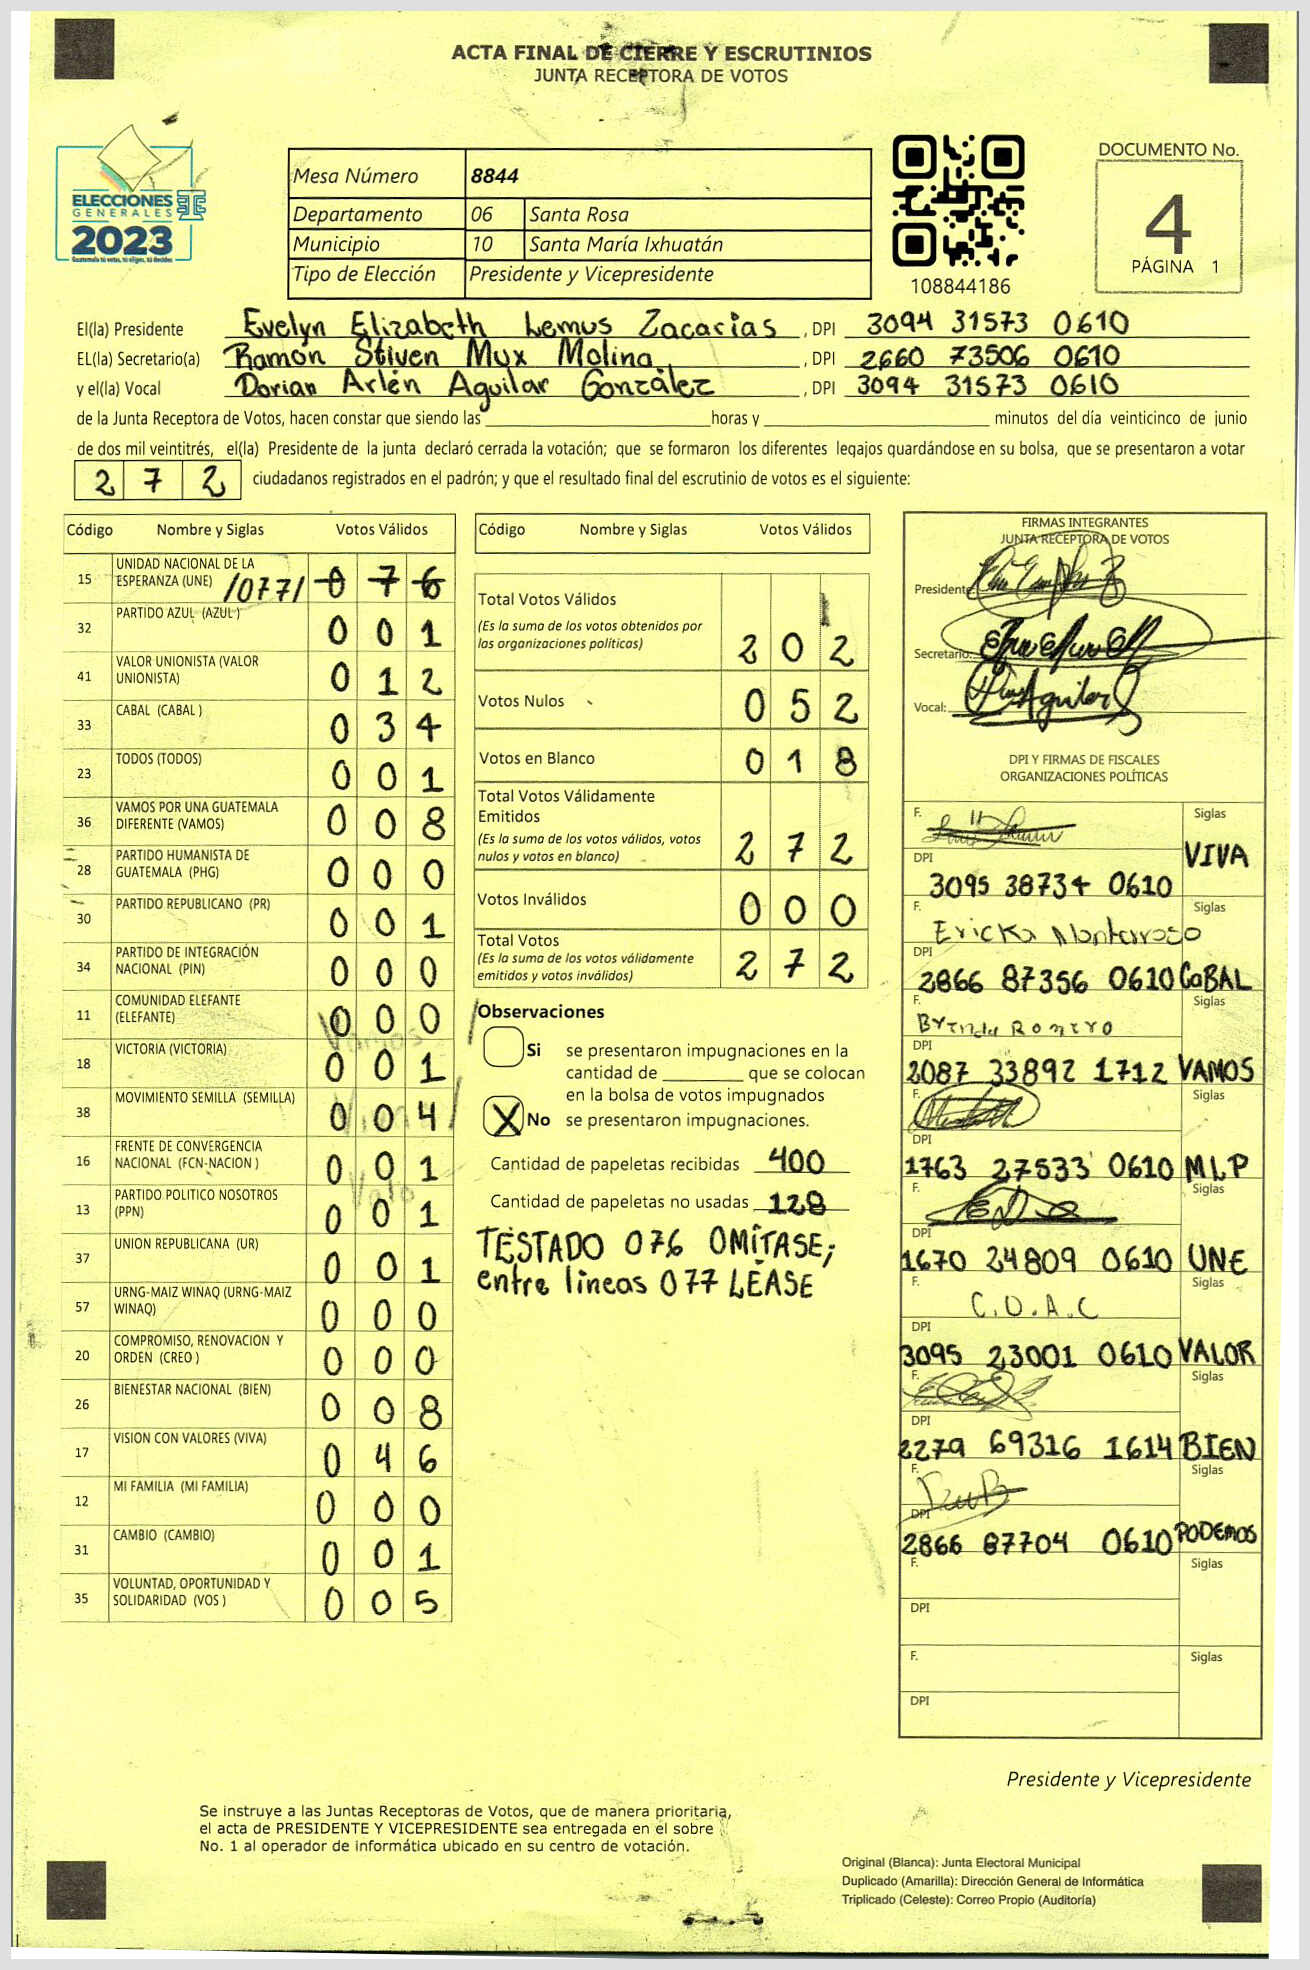 ACTA FINAL DE CIERRE Y ESCRUTINIOS
JUNTA RECEPTORA DE VOTOS
ELECCIONES
GENERALES
2023
Mesa Número 8844
Departamento 06 Santa Rosa
Municipio 10 Santa María Ixhuatán
Tipo de Elección Presidente y Vicepresidente
108844186
DOCUMENTO No.
4
PÁGINA 1
El(la) Presidente Evelyn Elizabeth Lemus Zacarias , DPI 3094 31573 0610
EL(la) Secretario(a) Ramón Stiven Mux Molina , DPI 2660 73506 0610
y el(la) Vocal Dorian Arlén Aguilar González , DPI 3094 31573 0610
de la Junta Receptora de Votos, hacen constar que siendo las horas y minutos del día veinticinco de junio
de dos mil veintitrés, el(la) Presidente de la junta declaró cerrada la votación; que se formaron los diferentes legajos quardándose en su bolsa, que se presentaron a votar
272 ciudadanos registrados en el padrón; y que el resultado final del escrutinio de votos es el siguiente:
Código Nombre y Siglas Votos Válidos
15 UNIDAD NACIONAL DE LA
ESPERANZA (UNE) /077/ 0 7 6
32 PARTIDO AZUL (AZUL ) 0 0 1
41 VALOR UNIONISTA (VALOR
UNIONISTA) 0 1 2
33 CABAL (CABAL ) 0 3 4
23 TODOS (TODOS) 0 0 1
36 VAMOS POR UNA GUATEMALA
DIFERENTE (VAMOS) 0 0 8
28 PARTIDO HUMANISTA DE
GUATEMALA (PHG) 0 0 0
30 PARTIDO REPUBLICANO (PR) 0 0 1
34 PARTIDO DE INTEGRACIÓN
NACIONAL (PIN) 0 0 0
11 COMUNIDAD ELEFANTE
(ELEFANTE) 0 0 0
18 VICTORIA (VICTORIA) 0 0 1
38 MOVIMIENTO SEMILLA (SEMILLA) 0 0 4
16 FRENTE DE CONVERGENCIA
NACIONAL (FCN-NACION ) 0 0 1
13 PARTIDO POLITICO NOSOTROS
(PPN) 0 0 1
37 UNION REPUBLICANA (UR) 0 0 1
57 URNG-MAIZ WINAQ (URNG-MAIZ
WINAQ) 0 0 0
20 COMPROMISO, RENOVACION Y
ORDEN (CREO ) 0 0 0
26 BIENESTAR NACIONAL (BIEN) 0 0 8
17 VISION CON VALORES (VIVA) 0 4 6
12 MI FAMILIA (MI FAMILIA) 0 0 0
31 CAMBIO (CAMBIO) 0 0 1
35 VOLUNTAD, OPORTUNIDAD Y
SOLIDARIDAD (VOS ) 0 0 5
Código Nombre y Siglas Votos Válidos
Total Votos Válidos
(Es la suma de los votos obtenidos por
las organizaciones políticas) 2 0 2
Votos Nulos 0 5 2
Votos en Blanco 0 1 8
Total Votos Válidamente
Emitidos
(Es la suma de los votos válidos, votos
nulos y votos en blanco) 2 7 2
Votos Inválidos 0 0 0
Total Votos
(Es la suma de los votos válidamente
emitidos y votos inválidos) 2 7 2
Observaciones
Si se presentaron impugnaciones en la
cantidad de que se colocan
en la bolsa de votos impugnados
X No se presentaron impugnaciones.
Cantidad de papeletas recibidas 400
Cantidad de papeletas no usadas 128
TESTADO 076 OMÍTASE;
entre lineas 077 LÉASE
FIRMAS INTEGRANTES
JUNTA RECEPTORA DE VOTOS
Presidente:
Secretario:
Vocal: Aguilar
DPI Y FIRMAS DE FISCALES
ORGANIZACIONES POLÍTICAS
F. Siglas
DPI VIVA
3095 38734 0610
F. Ericka Monterroso Siglas
DPI
2866 87356 0610 CaBAL
F. Brenda Romero Siglas
DPI
2087 33892 1712 VAMOS
F. Siglas
DPI
1763 27533 0610 MLP
F. Siglas
DPI
1670 24809 0610 UNE
F. C.O.A.C Siglas
DPI
3095 23001 0610 VALOR
F. Siglas
DPI
2279 69316 1614 BIEN
F. Siglas
DPI
2866 87704 0610 PODEMOS
F. Siglas
DPI
F. Siglas
DPI
Presidente y Vicepresidente
Se instruye a las Juntas Receptoras de Votos, que de manera prioritaria,
el acta de PRESIDENTE Y VICEPRESIDENTE sea entregada en el sobre
No. 1 al operador de informática ubicado en su centro de votación.
Original (Blanca): Junta Electoral Municipal
Duplicado (Amarilla): Dirección General de Informática
Triplicado (Celeste): Correo Propio (Auditoría)